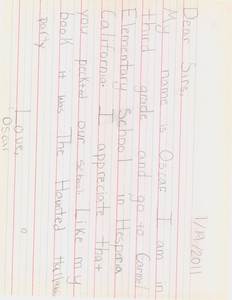 1/19/2011
Dear Sirs,
My name is Oscar I am in
third grade and go to Carmel
Elementary School in Hesperia
California. I appreciate that
you picked our school. I like my
book it was The Haunted
party
Love,
Oscar